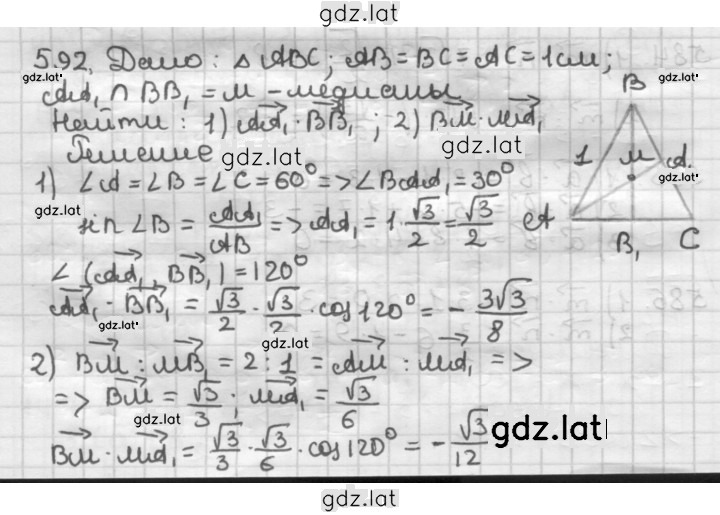 gdz.lat
5.92. Дано: △ABC; AB=BC=AC=1см;
gdz.lat
AA₁ ∩ BB₁ = M - медианы
Найти: 1) AA₁·BB₁; 2) BM·MA₁
gdz.lat
Решение
1) ∠A=∠B=∠C=60° => ∠BAA₁=30°
gdz.lat
sin∠B = AA₁/AB => AA₁ = 1·√3/2 = √3/2
∠(AA₁, BB₁)=120°
AA₁·BB₁ = √3/2 · √3/2 · cos120° = - 3√3/8
gdz.lat
2) BM : MB₁ = 2:1 = AM : MA₁ =>
=> BM = √3/3; MA₁ = √3/6
gdz.lat
BM·MA₁ = √3/3 · √3/6 · cos120° = - √3/12
gdz.lat
B
1 M A₁
gdz.lat
A B₁ C
gdz.lat